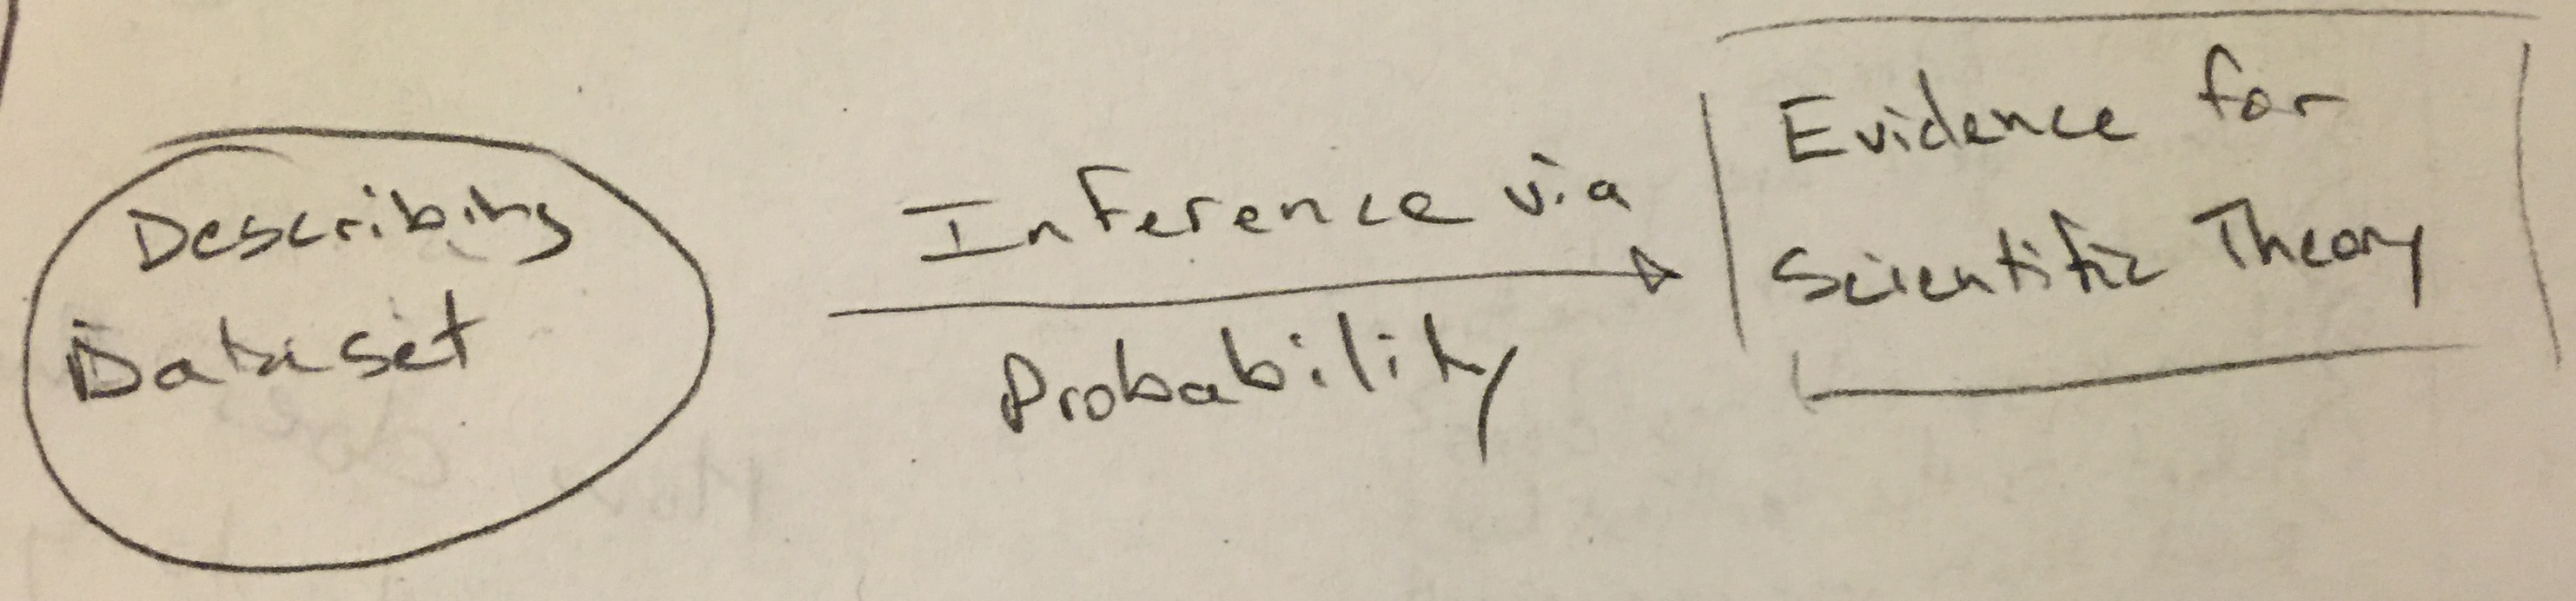 Describing
Dataset
Inference via
Probability
Evidence for
Scientific Theory